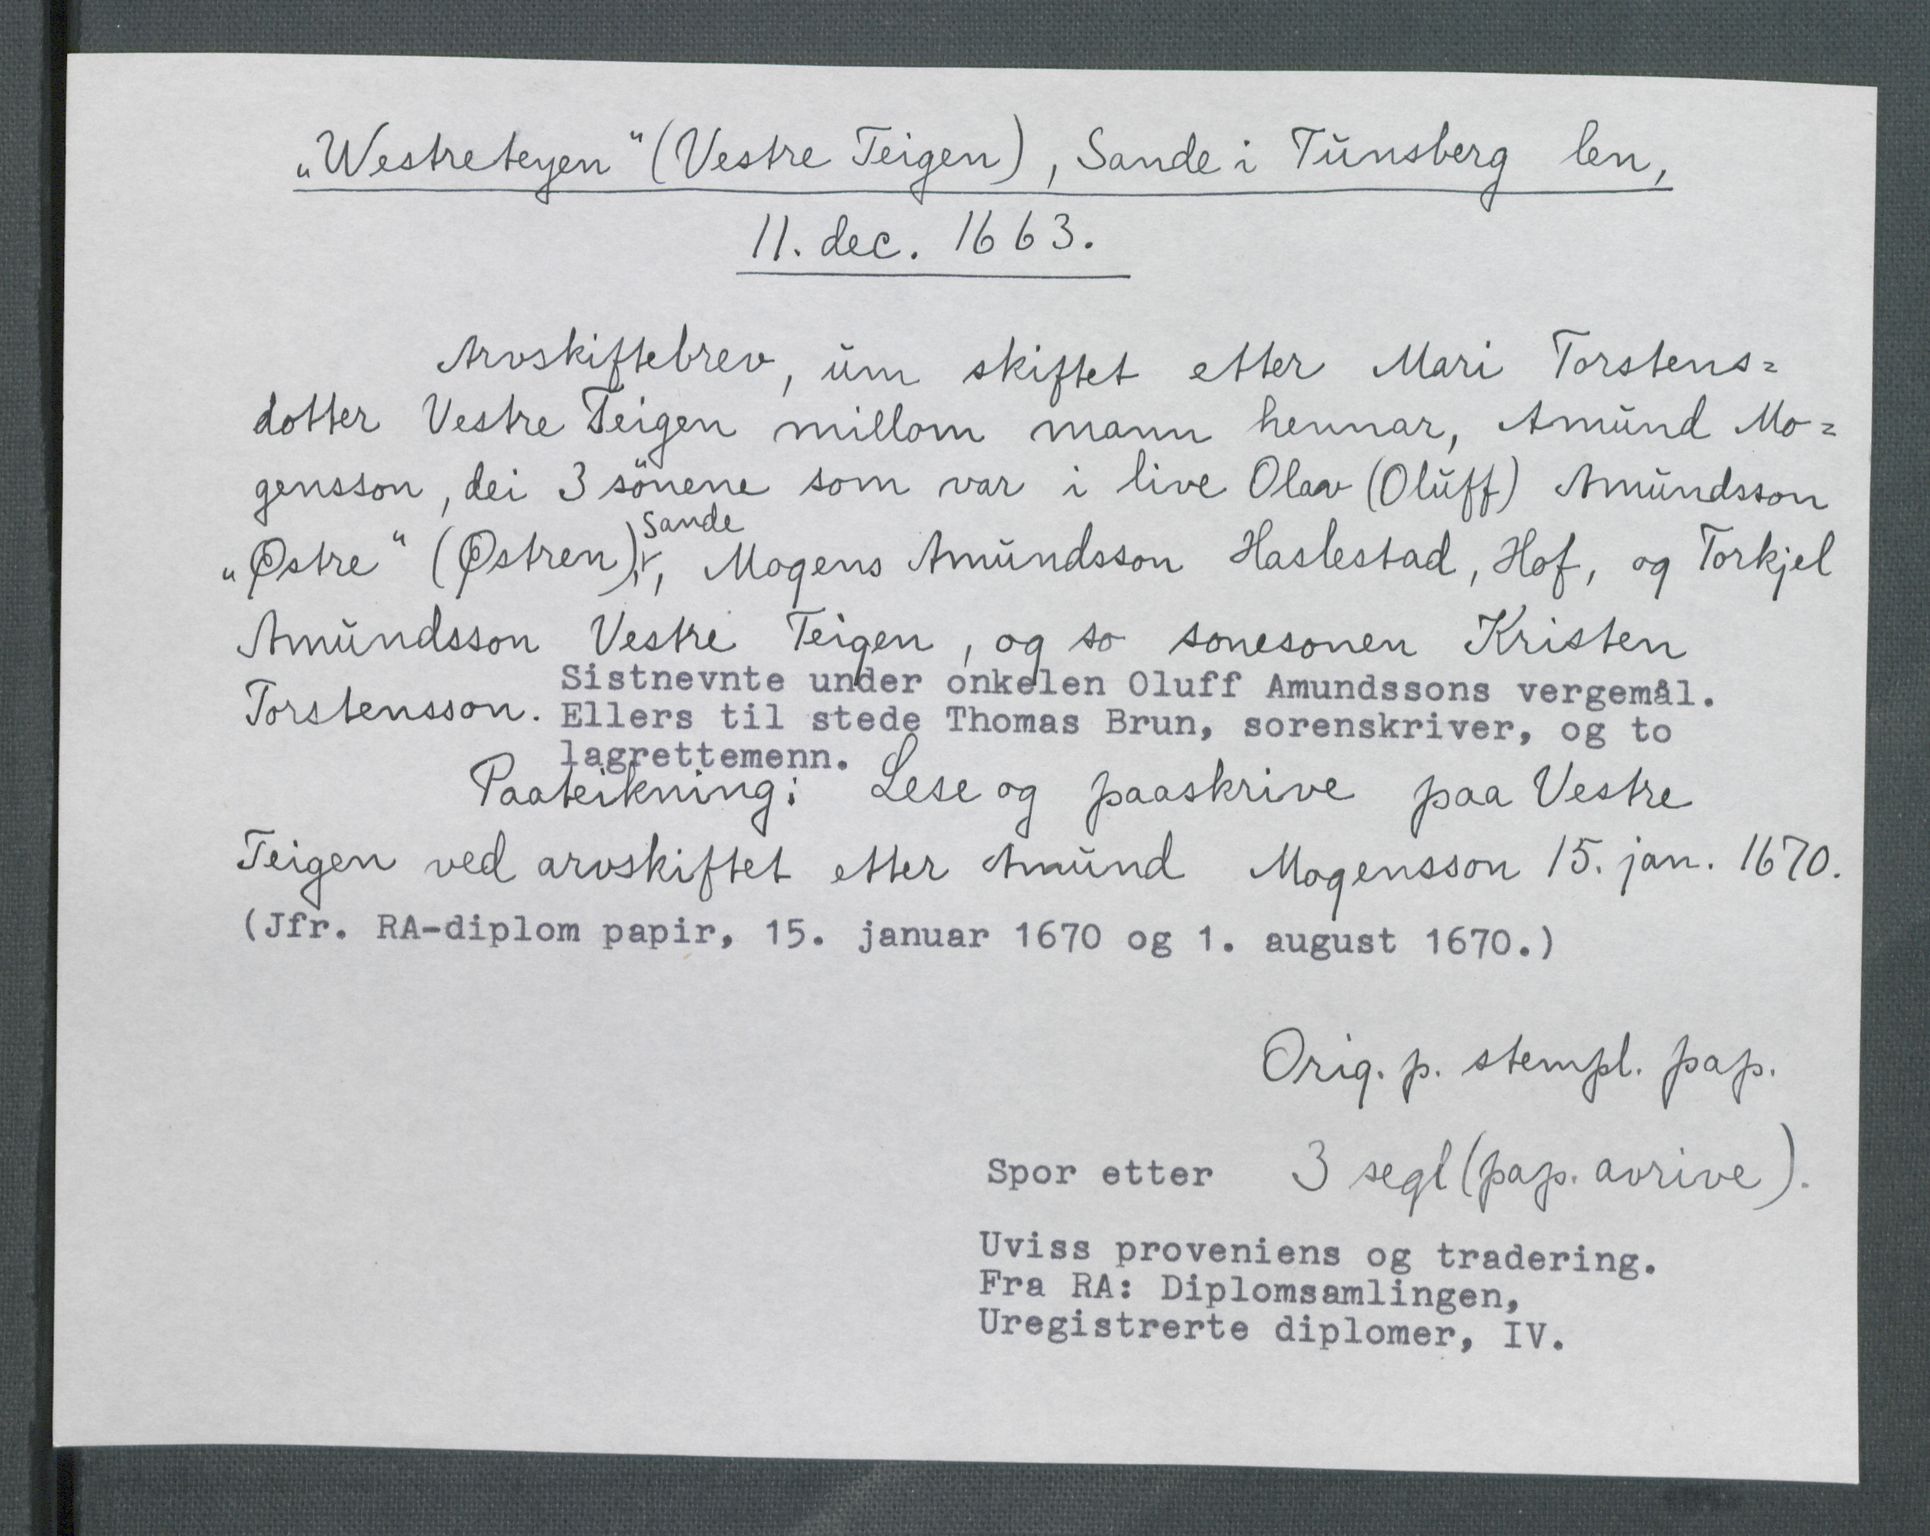 „Westreteyen" (Vestre Teigen), Sande i Tŭnsberg len,
11. dec. 1663.
Arvskiftebrev, ŭm skiftet etter Mari Torstens=
dotter Vestre Teigen millom mann hennar, Amŭnd Mo=
gensson, dei 3 sönene som var i live Olav (Olŭff) Amŭndsson
Sande
„Østre" (Østren), Mogens Amŭndsson Haslestad, Hof, og Torkjel
Amŭndsson Vestre Teigen, og so sonesonen Kristen
Sistnevnte under onkelen Oluff Amundssons vergemål.
Torstensson. Ellers til stede Thomas Brun, sorenskriver, og to
lagrettemenn.
Paateikning: Lese og paaskrive paa Vestre
Teigen ved arvskiftet etter Amŭnd Mogensson 15. jan. 1670.
(Jfr. RA-diplom papir, 15. januar 1670 og 1. august 1670.)
Orig. p. stempl. pap.
Spor etter 3 segl (pap. avrive).
Uviss proveniens og tradering.
Fra RA: Diplomsamlingen,
Uregistrerte diplomer, IV.